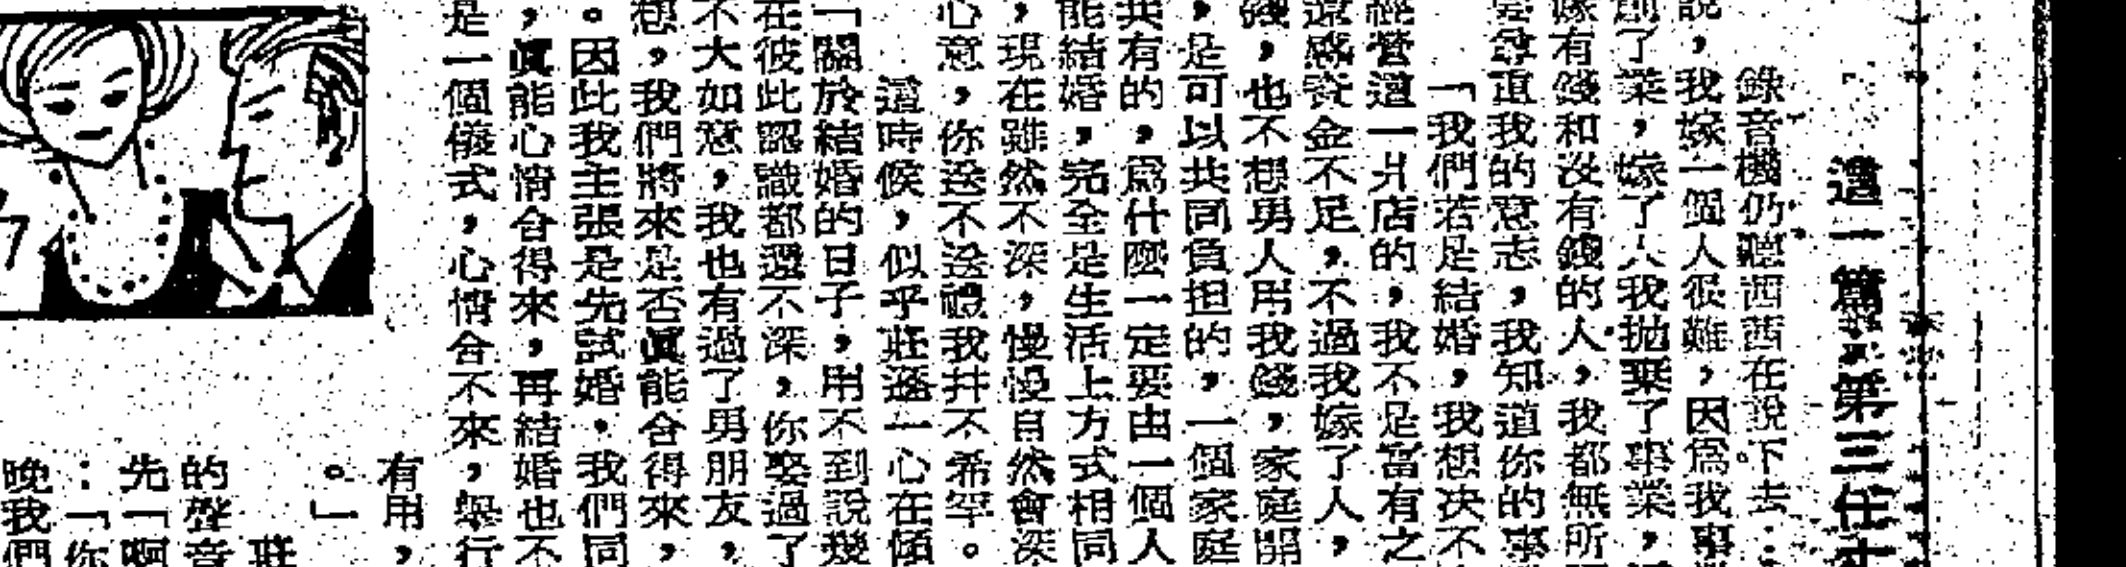 這一篇：第三任丈
錄音機仍聽茜茜在說下去：
說，我嫁一個人很難，因為我事業
創了業，嫁了人我拋棄了事業，
嫁有錢和沒有錢的人，我都無所
尊重我的意志，我知道你的事
「我們若是結婚，我想决不
經營這一爿店的，我不足富有之
還感資金不足，不過我嫁了人，
錢，也不想男人用我錢，家庭開
，是可以共同負担的，一個家庭
共有的，為什麼一定要由一個人
能結婚，完全是生活上方式相同
，現在雖然不深，慢慢自然會深
心意，你送不送禮我幷不希罕。
這時候，似乎莊遜一心在傾
「關於結婚的日子，用不到說幾
在彼此認識都還不深，你娶過了
不大如意，我也有過了男朋友，
想，我們將來是否眞能合得來，
。因此我主張是先試婚。我們同
，眞能心情合得來，再結婚也不
是一個儀式，心情合不來，舉行
有用，
。」
莊
的聲音
先「啊
：「你
晚我們
7